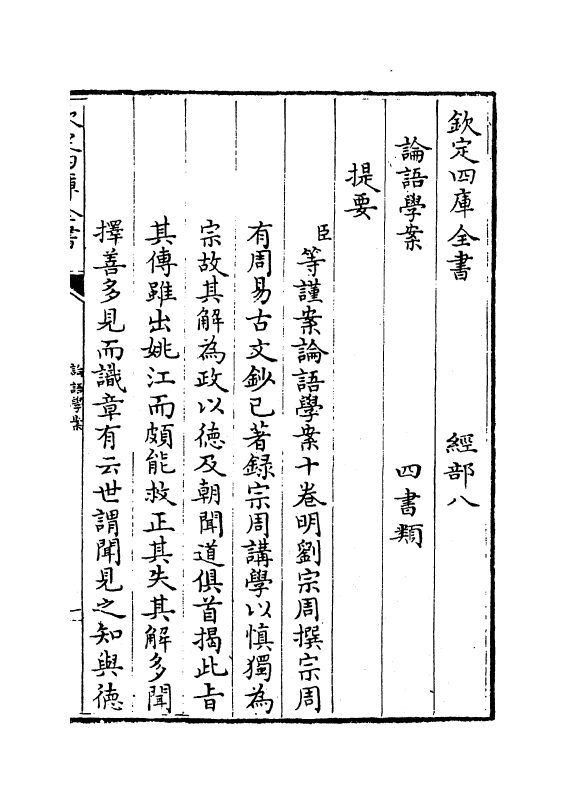 欽定四庫全書　經部八
論語學案　四書類
提要
臣等謹案論語學案十卷明劉宗周撰宗周
有周易古文鈔已著録宗周講學以慎獨為
宗故其解為政以徳及朝聞道俱首揭此㫖
其傳雖出姚江而頗能救正其失其解多聞
擇善多見而識章有云世謂聞見之知與徳
欽定四庫全書
論語學案
一